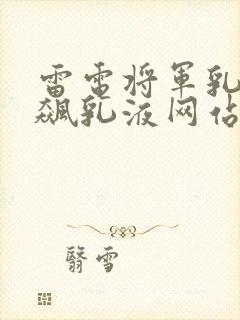 雷电将军乳
飙乳液网站
翳雪